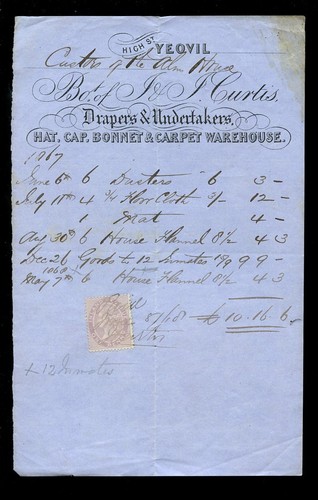 HIGH ST. YEOVIL
Custors of the Alm House
Bot. of J & J. Curtis,
Drapers & Undertakers,
HAT, CAP, BONNET & CARPET WAREHOUSE.
1867
June 6th 6 Dusters 6 3 -
July 10th 4 ¾ Floor Cloth 3/- 12 -
1 Mat 4 -
Aug 30th 6 House Flannel 8½ 4 3
Dec 26 Goods to 12 Inmates 9 9 -
1868
May 7th 6 House Flannel 8½ 4 3
£ 10 . 16 . 6 -
+ 12 Inmates